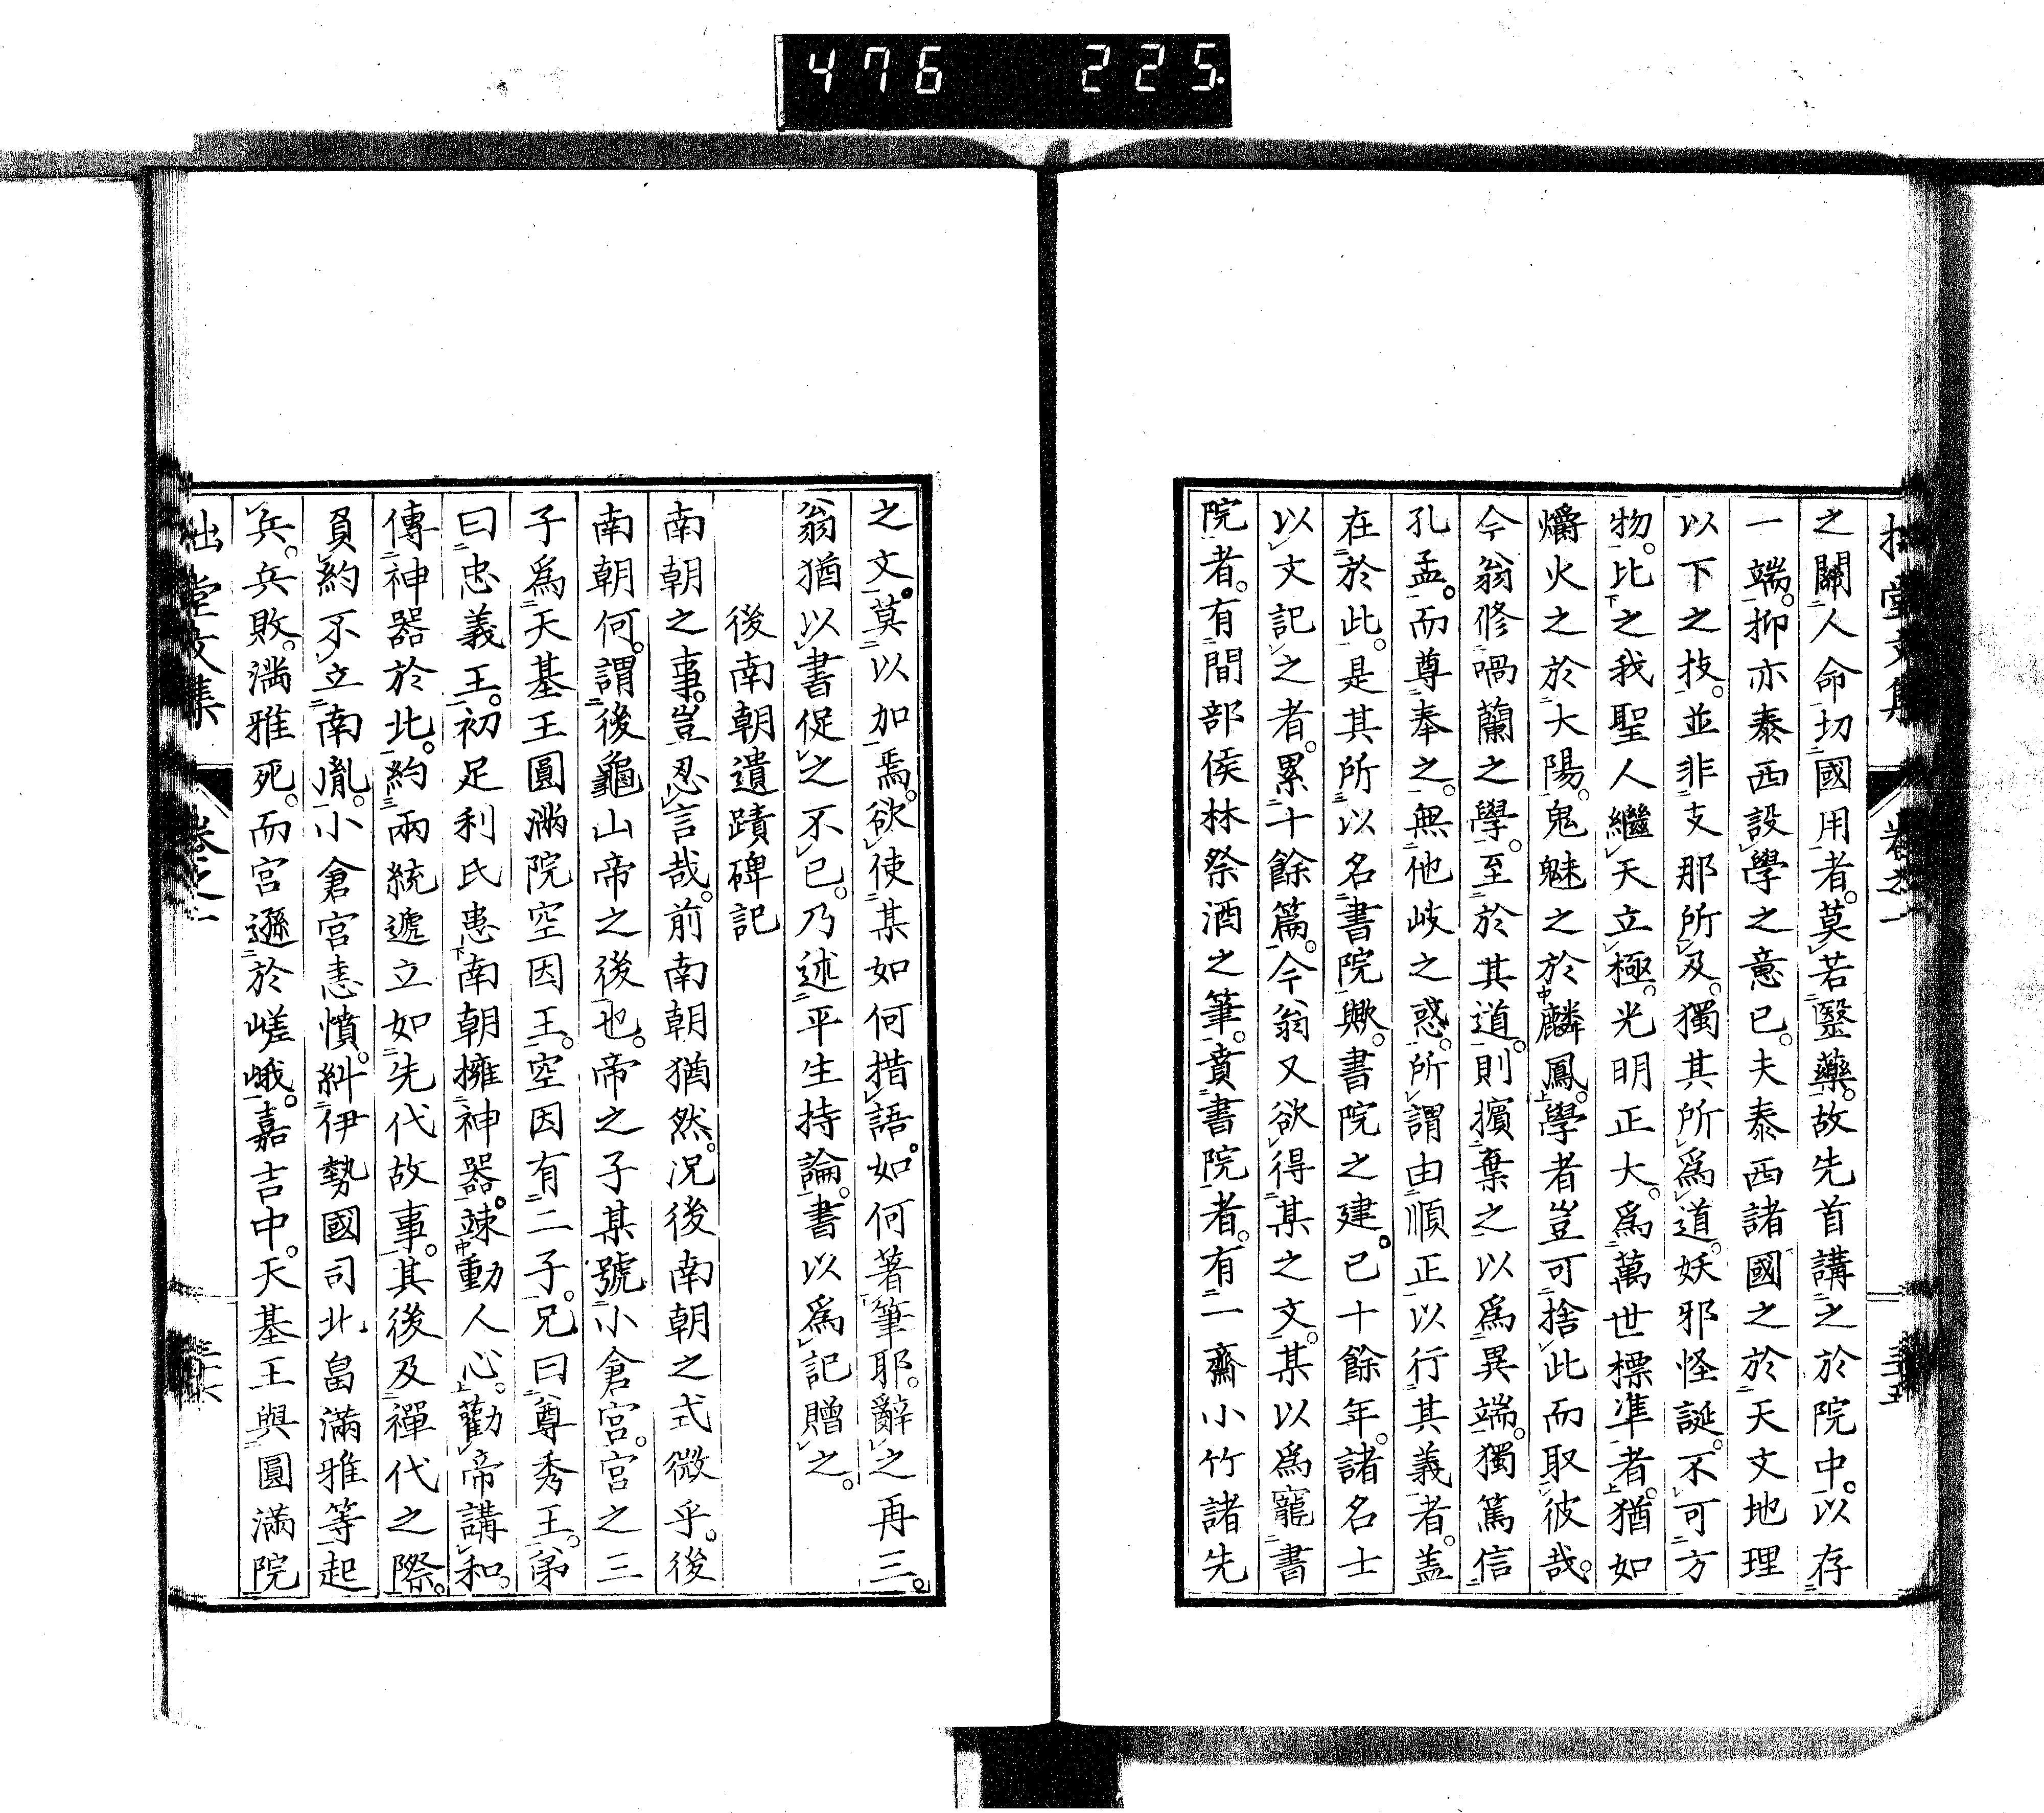 476 225
拙堂文集 卷之一 三十五
之關人命切國用者。莫若醫藥。故先首講之於院中。以存
一端。抑亦泰西設學之意已。夫泰西諸國之於天文地理
以下之技。並非支那所及。獨其所爲道。妖邪怪誕。不可方
物。比之我聖人繼天立極。光明正大。爲萬世標準者。猶如
爝火之於大陽。鬼魅之於麟鳳。學者豈可捨此而取彼哉。
今翁修喎蘭之學。至於其道。則擯棄之以爲異端。獨篤信
孔孟。而尊奉之。無他岐之惑。所謂由順正以行其義者。盖
在於此。是其所以名書院歟。書院之建。已十餘年。諸名士
以文記之者。累十餘篇。今翁又欲得某之文。某以爲寵書
院者。有間部侯林祭酒之筆。賁書院者。有一齋小竹諸先
之文。莫以加焉。欲使某如何措語。如何著筆耶。辭之再三。
翁猶以書促之不已。乃述平生持論。書以爲記贈之。
後南朝遺蹟碑記
南朝之事。豈忍言哉。前南朝猶然。況後南朝之式微乎。後
南朝何。謂後龜山帝之後也。帝之子某號小倉宮。宮之三
子爲天基王圓滿院空因王。空因有二子。兄曰尊秀王。弟
曰忠義王。初足利氏患南朝擁神器。竦動人心。勸帝講和。
傳神器於北。約兩統遞立如先代故事。其後及禪代之際。
負約不立南胤。小倉宮恚憤。糾伊勢國司北畠滿雅等起
兵。兵敗。滿雅死。而宮遜於嵯峨。嘉吉中。天基王與圓滿院
拙堂文集 卷之一